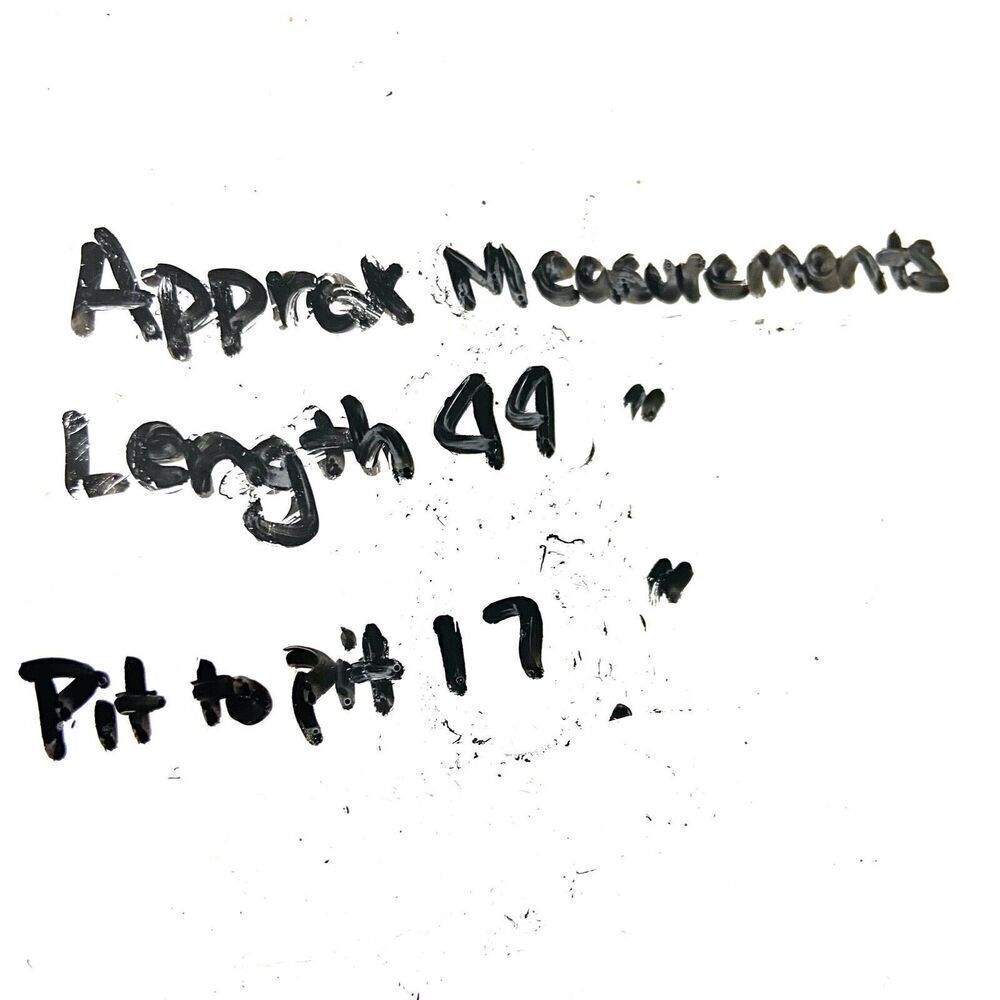 Approx Measurements
Length 49 "
Pit to pit 17 "